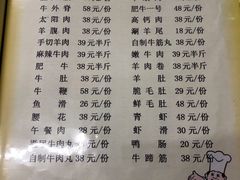 牛外脊 58元/份 肥牛一号 48元/份
太阳肉 38元/份 高钙肉 38元/份
羊腹肉 38元/份 涮羊尾 18元/份
手切羊肉 39元半斤 自制牛筋丸 38元/份
麻辣牛肉 39元半斤 嫩牛肉 39元/半斤
肥牛 38元/份 羊肉卷 38元/半斤
牛肚 38元/份 羊肚 38元/份
牛鞭 58元/份 脆毛肚 29元/份
鱼滑 28元/份 鲜毛肚 48元/份
腰花 38元/份 青虾 48元/份
午餐肉 28元/份 虾滑 30元/份
牛肉丸 38元/份 鸭肠 20元/份
自制牛肉丸 38元/份 牛蹄筋 38元/份